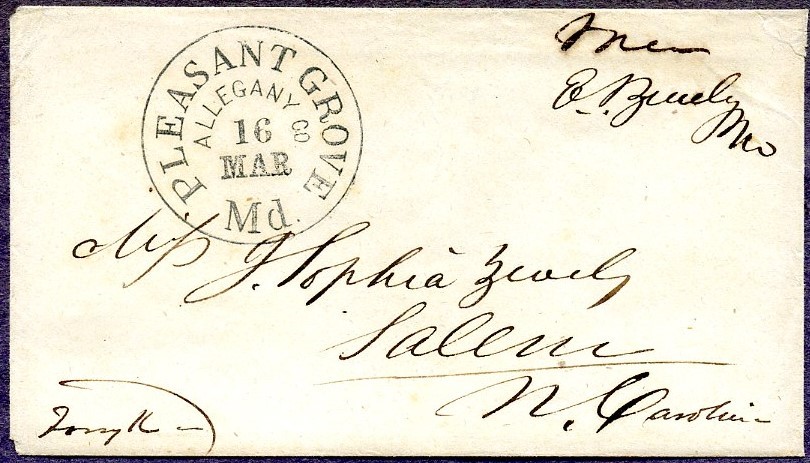 PLEASANT GROVE
ALLEGANY CO
16
MAR
Md.
Free
E. Zevely
PM
Miss J. Sophia Zevely
Salem
N. Carolina
Forsyth